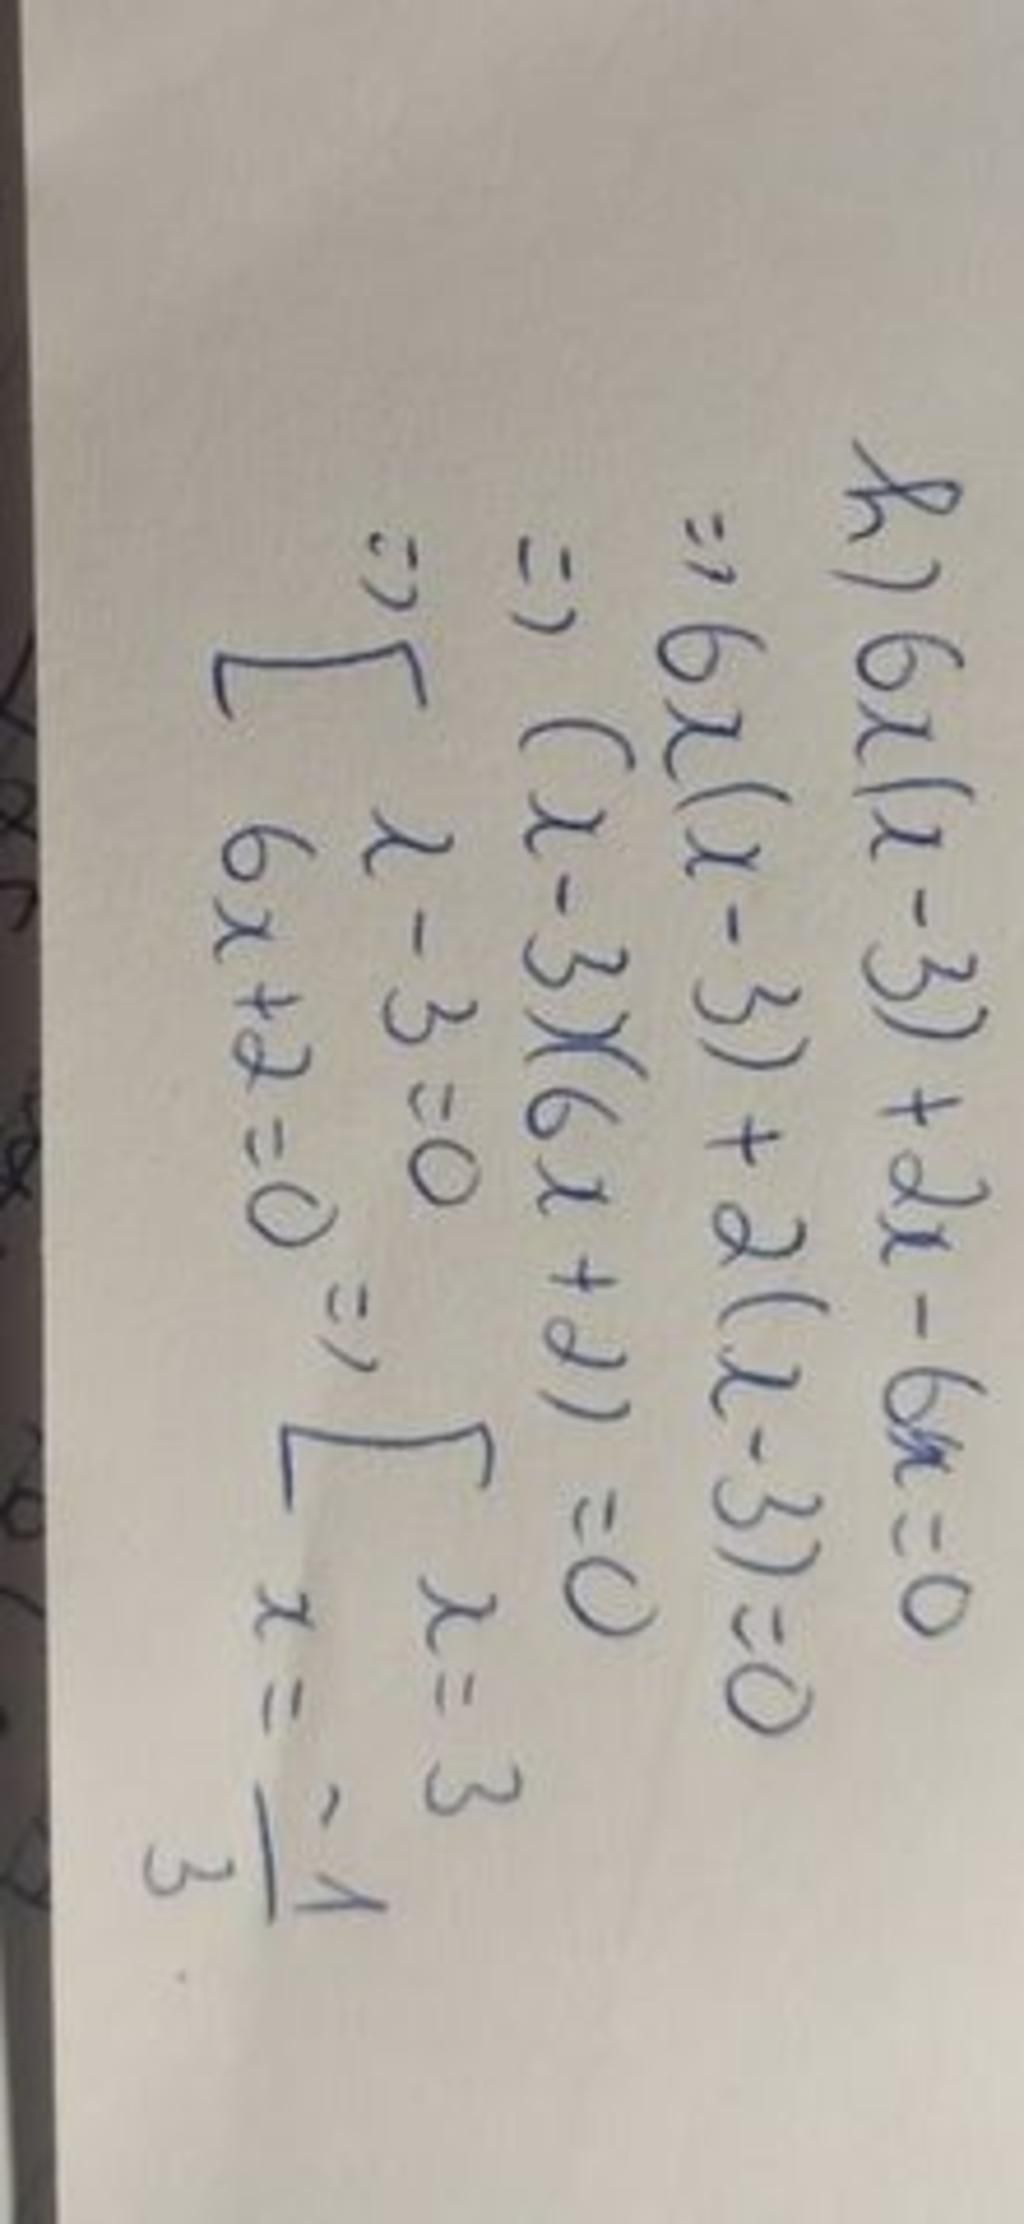 h) 6x(x-3)+2x-6x=0
=> 6x(x-3)+2(x-3)=0
=> (x-3)(6x+2)=0
=> [ x-3=0
6x+2=0 => [ x=3
x=-1/3